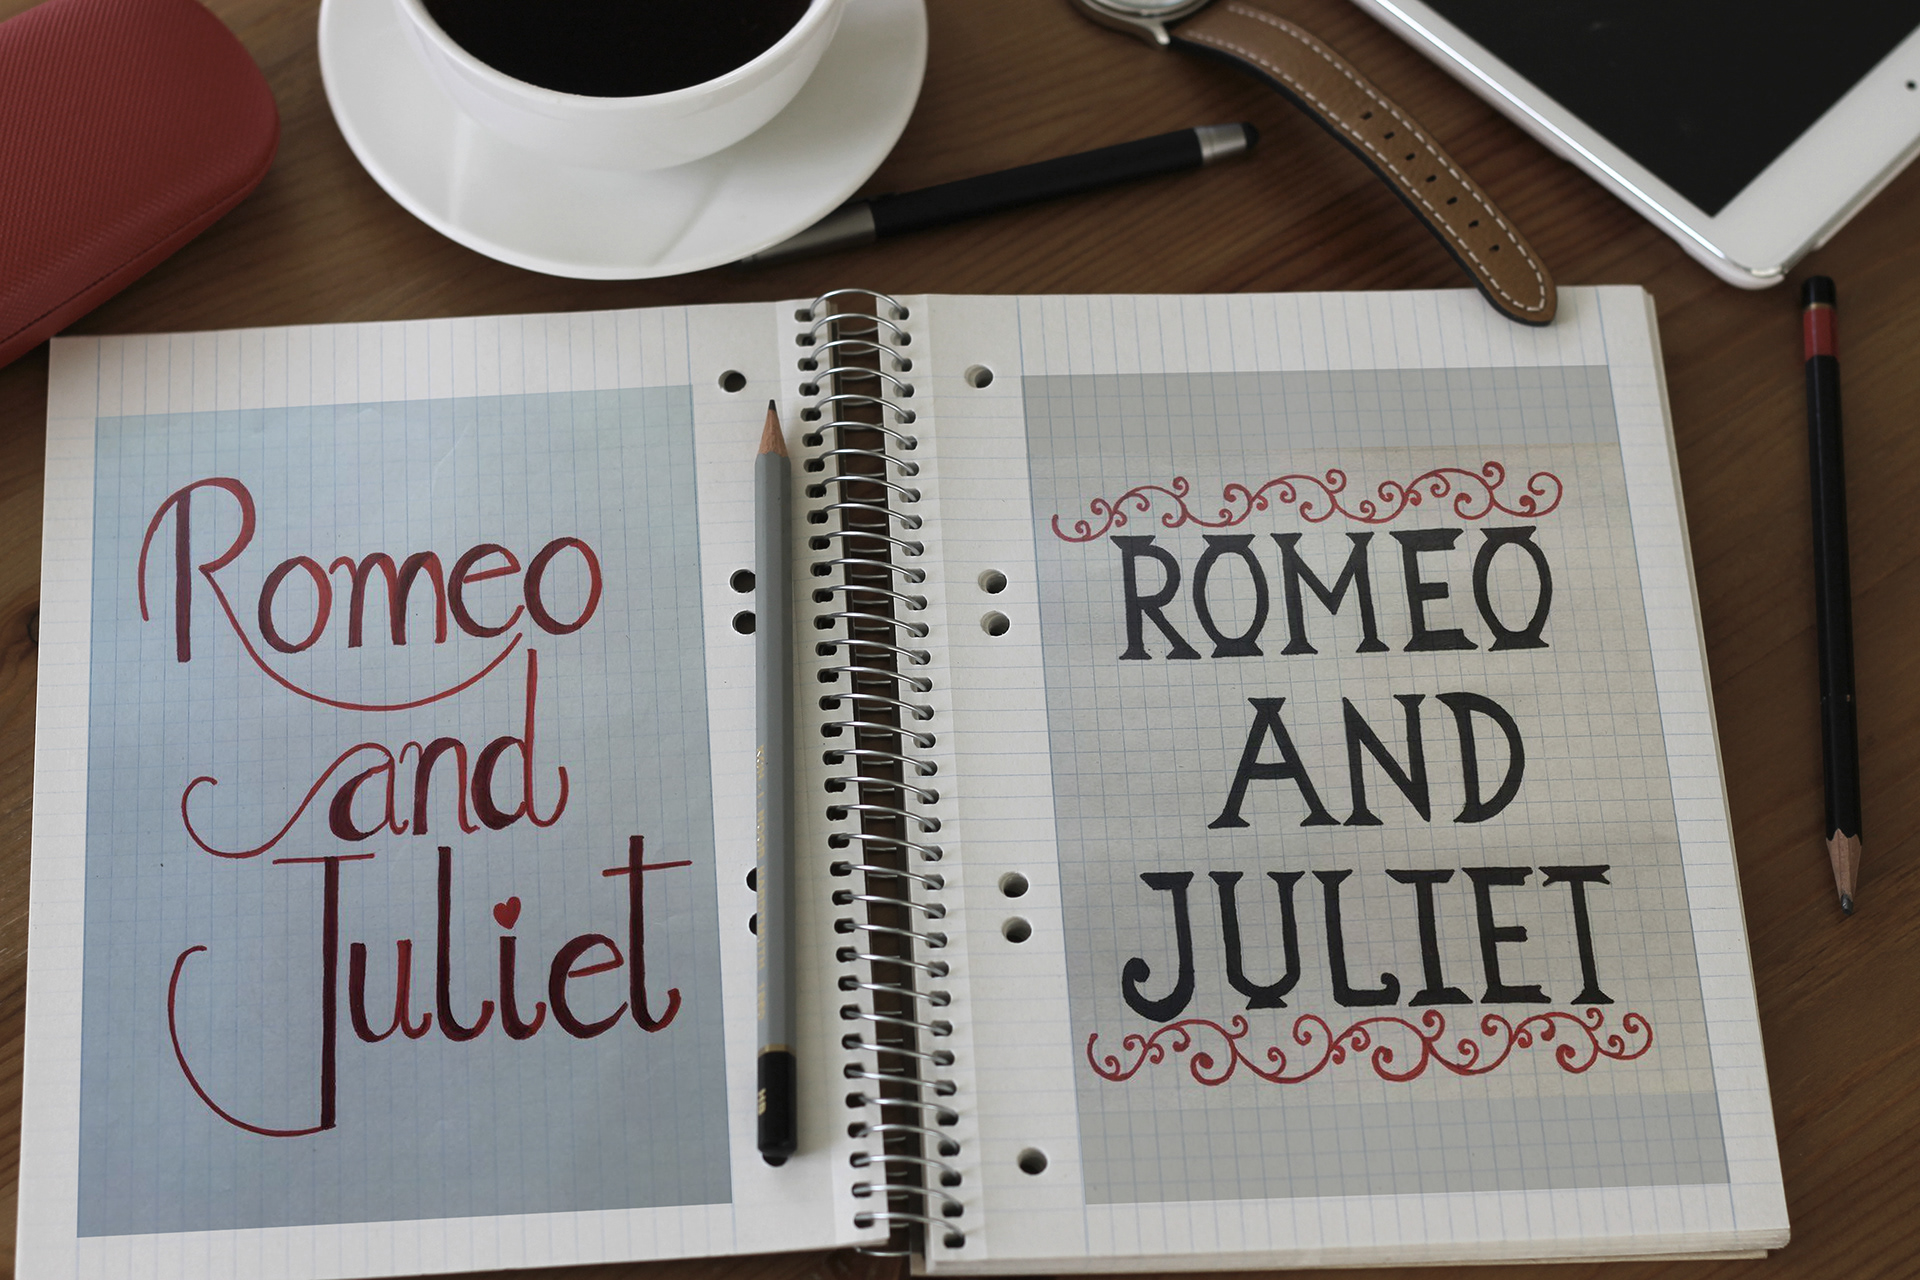 Romeo
and
Juliet
ROMEO
AND
JULIET
HB